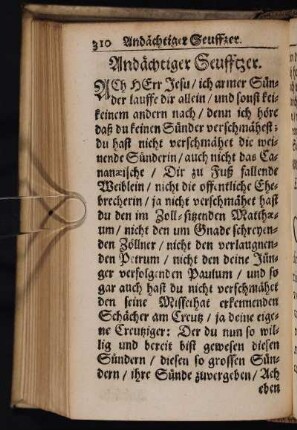 310 Andächtiger Seuffzer.
Andächtiger Seufftzer.
ACh HErr Jesu / ich armer Sün-
der lauffe dir allein / und sonst kei-
keinem andern nach / denn ich höre
daß du keinen Sünder verschmähest:
du hast nicht verschmähet die wei-
nende Sünderin / auch nicht das Ca-
nanæische / Dir zu Fuß fallende
Weiblein / nicht die offentliche Ehe-
brecherin / ja nicht verschmähet hast
du den im Zoll-sitzenden Matthæ-
um / nicht den um Gnade schreyen-
den Zöllner / nicht den verlaugnen-
den Petrum / nicht den deine Jün-
ger verfolgenden Paulum / und so
gar auch hast du nicht verschmähet
den seine Missethat erkennenden
Schächer am Creutz / ja deine eige-
ne Creutziger: Der du nun so wil-
lig und bereit bist gewesen diesen
Sündern / diesen so grossen Sün-
dern / ihre Sünde zuvergeben / Ach
eben